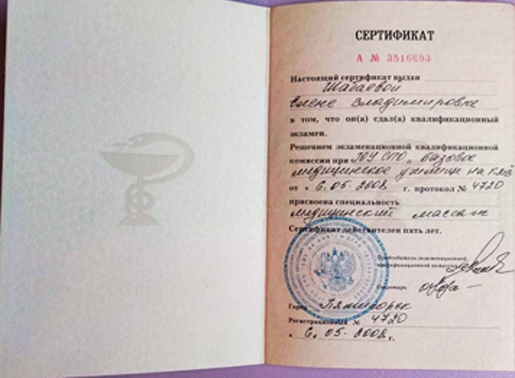 СЕРТИФИКАТ
А № 3516693
Настоящий сертификат выдан
Шабаевой
Елене Владимировне
в том, что он(а) сдал(а) квалификационный
экзамен.
Решением экзаменационной квалификационной
комиссии при ГОУ СПО „Базовое
медицинское училище на КМВ
от « 6.05.2008 г. протокол № 4720
присвоена специальность
медицинский массаж
Сертификат действителен пять лет.
Председатель экзаменационной
квалификационной комиссии
Секретарь
Город Пятигорск
Регистрационный № 4720
« 6.05-2008 г.